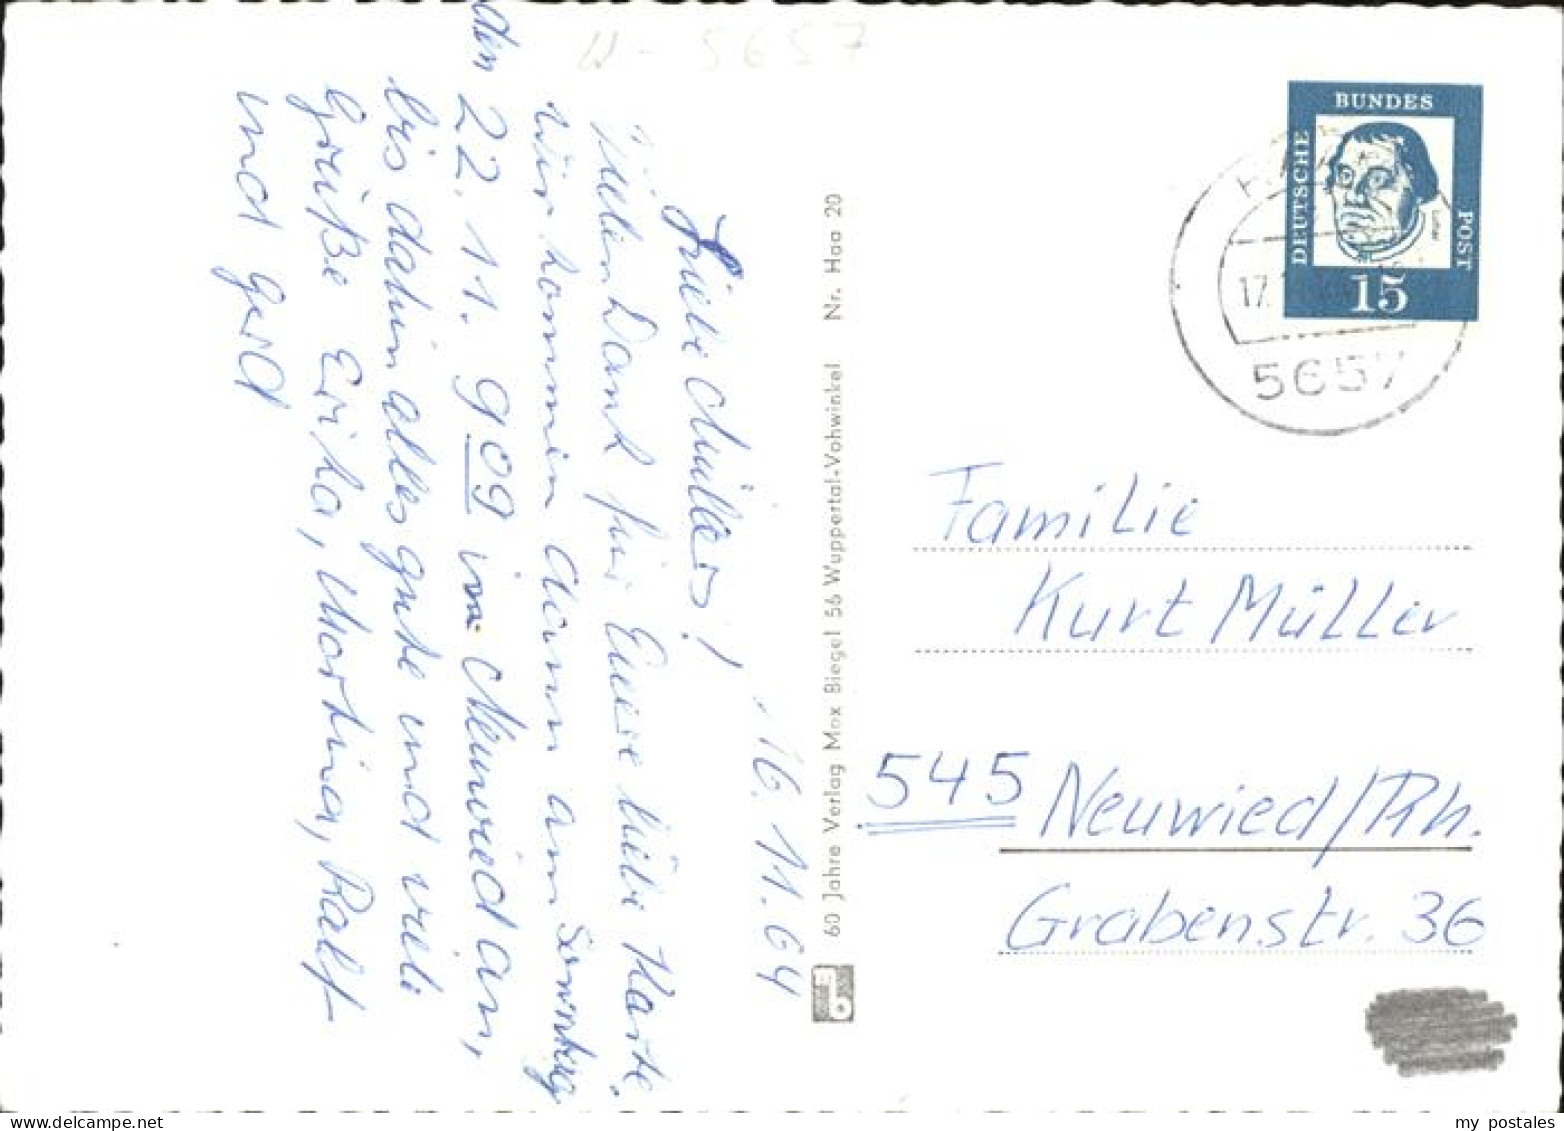 W-5657
16.11.64
Liebe Müllers!
Vielen Dank für Euere liebe Karte.
Wir kommen dann am Sonntag
den 22.11. 9 09 in Neuwied an,
bis dahin alles gute und viele
Grüße Erika, Martina, Ralf
und Gerd
60 Jahre Verlag Max Biegel 56 Wuppertal-Vohwinkel Nr. Haa 20
DEUTSCHE
BUNDES
POST
Luther
15
17.
5657
Familie
Kurt Müller
545 Neuwied/Rh.
Grabenstr. 36
my postales